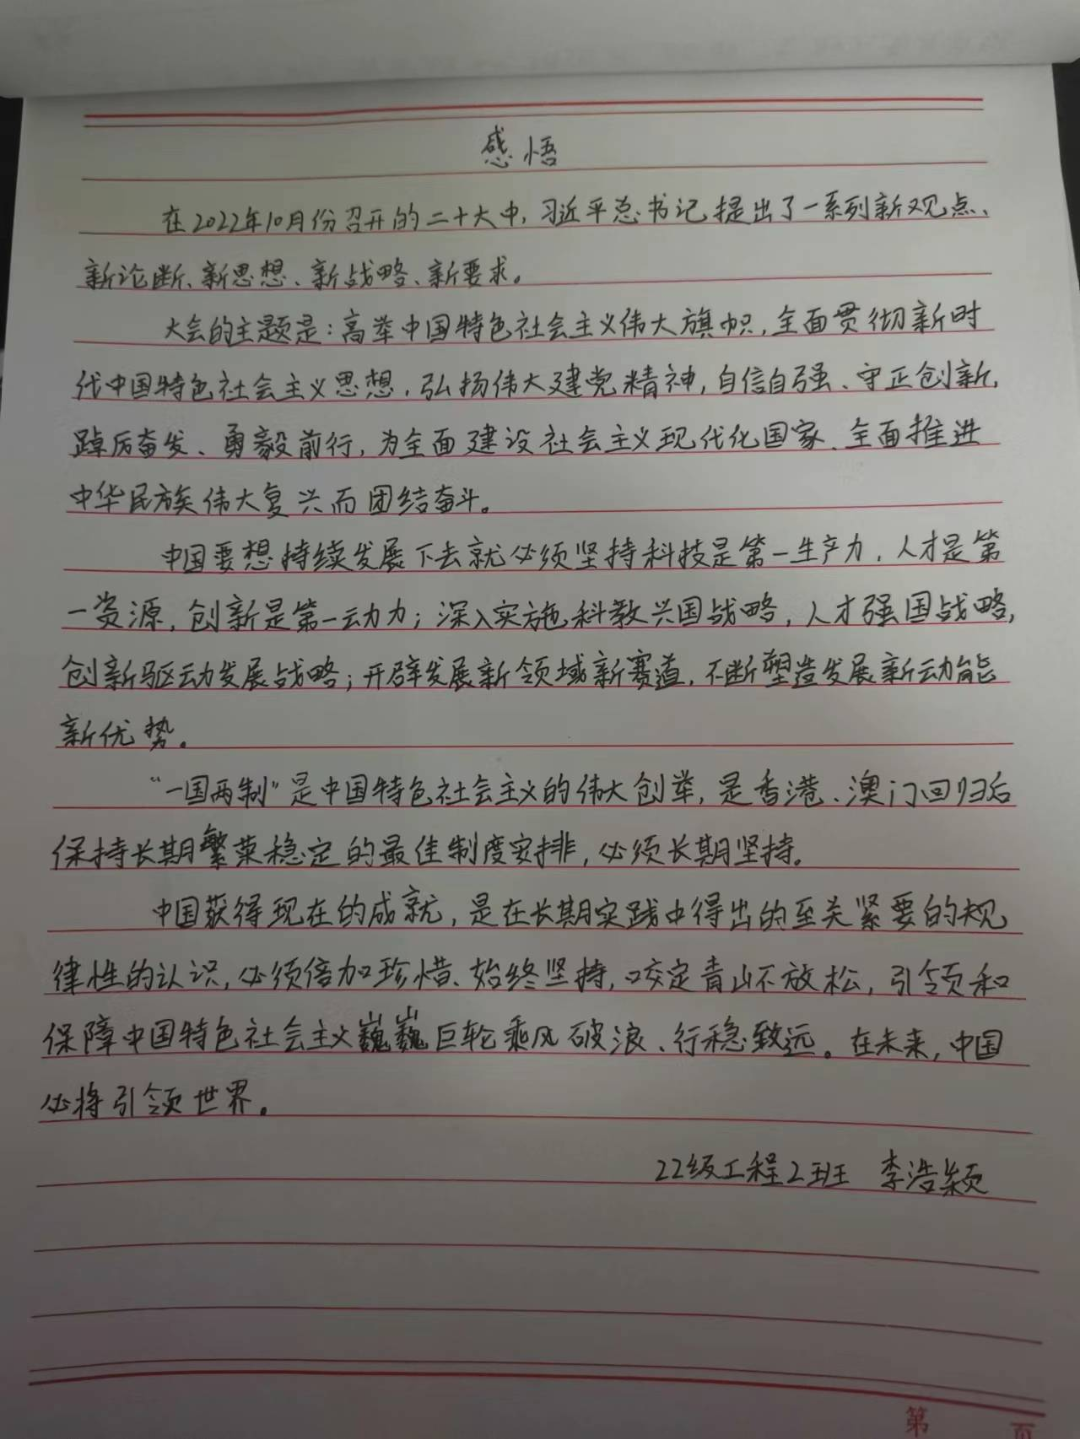 感悟
在2022年10月份召开的二十大中，习近平总书记提出了一系列新观点、
新论断、新思想、新战略、新要求。
大会的主题是：高举中国特色社会主义伟大旗帜，全面贯彻新时
代中国特色社会主义思想，弘扬伟大建党精神，自信自强、守正创新，
踔厉奋发、勇毅前行，为全面建设社会主义现代化国家、全面推进
中华民族伟大复兴而团结奋斗。
中国要想持续发展下去就必须坚持科技是第一生产力，人才是第
一资源，创新是第一动力；深入实施科教兴国战略，人才强国战略，
创新驱动发展战略；开辟发展新领域新赛道，不断塑造发展新动能
新优势。
“一国两制”是中国特色社会主义的伟大创举，是香港、澳门回归后
保持长期繁荣稳定的最佳制度安排，必须长期坚持。
中国获得现在的成就，是在长期实践中得出的至关紧要的规
律性的认识，必须倍加珍惜、始终坚持，咬定青山不放松，引领和
保障中国特色社会主义巍巍巨轮乘风破浪、行稳致远。在未来，中国
必将引领世界。
22级工程2班 李浩颖
第 页